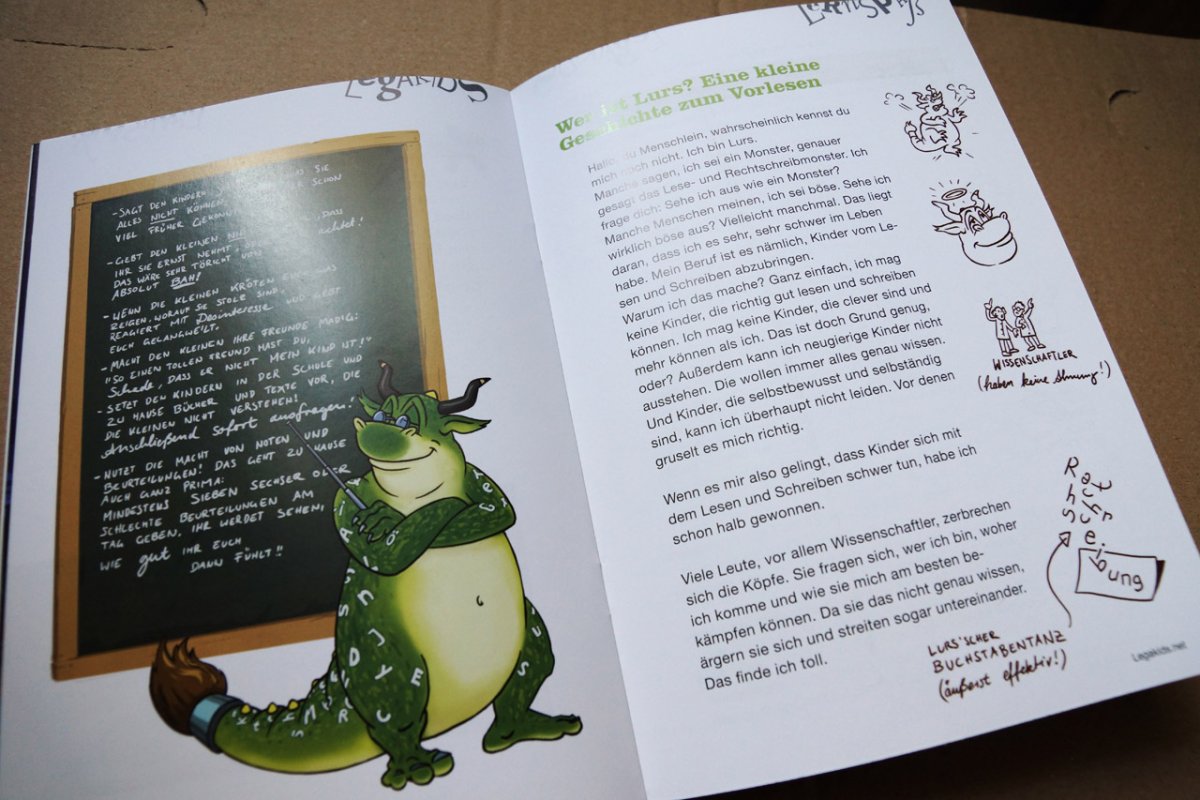 LegaKIDS
- SAGT DEN KINDERN
ALLES NICHT KÖNNEN
VIEL FRÜHER GEKONNT
- GEBT DEN KLEINEN
IHR SIE ERNST NEHMT,
DAS WÄRE SEHR TÖRICHT VON
ABSOLUT BAH!
- WENN DIE KLEINEN KRÖTEN EUCH WAS
ZEIGEN, WORAUF SIE STOLZ SIND,
REAGIERT MIT Desinteresse UND GEBT
EUCH GELANGWEILT.
- MACHT DEN KLEINEN IHRE FREUNDE MADIG:
"SO EINEN TOLLEN FREUND HAST DU,
Schade, DASS ER NICHT MEIN KIND IST!"
- SETZT DEN KINDERN IN DER SCHULE UND
ZU HAUSE BÜCHER UND TEXTE VOR, DIE
DIE KLEINEN NICHT VERSTEHEN!
Anschließend sofort ausfragen.
- NUTZT DIE MACHT VON NOTEN UND
BEURTEILUNGEN! DAS GEHT ZU HAUSE
AUCH GANZ PRIMA:
MINDESTENS SIEBEN SECHSER ODER
SCHLECHTE BEURTEILUNGEN AM
TAG GEBEN. IHR WERDET SEHEN,
WIE gut IHR EUCH
DANN FÜHLT!!
Wer ist Lurs? Eine kleine
Geschichte zum Vorlesen
Hallo, du Menschlein, wahrscheinlich kennst du
mich noch nicht. Ich bin Lurs.
Manche sagen, ich sei ein Monster, genauer
gesagt das Lese- und Rechtschreibmonster. Ich
frage dich: Sehe ich aus wie ein Monster?
Manche Menschen meinen, ich sei böse. Sehe ich
wirklich böse aus? Vielleicht manchmal. Das liegt
daran, dass ich es sehr, sehr schwer im Leben
habe. Mein Beruf ist es nämlich, Kinder vom Le-
sen und Schreiben abzubringen.
Warum ich das mache? Ganz einfach, ich mag
keine Kinder, die richtig gut lesen und schreiben
können. Ich mag keine Kinder, die clever sind und
mehr können als ich. Das ist doch Grund genug,
oder? Außerdem kann ich neugierige Kinder nicht
ausstehen. Die wollen immer alles genau wissen.
Und Kinder, die selbstbewusst und selbständig
sind, kann ich überhaupt nicht leiden. Vor denen
gruselt es mich richtig.
Wenn es mir also gelingt, dass Kinder sich mit
dem Lesen und Schreiben schwer tun, habe ich
schon halb gewonnen.
Viele Leute, vor allem Wissenschaftler, zerbrechen
sich die Köpfe. Sie fragen sich, wer ich bin, woher
ich komme und wie sie mich am besten be-
kämpfen können. Da sie das nicht genau wissen,
ärgern sie sich und streiten sogar untereinander.
Das finde ich toll.
WISSENSCHAFTLER
(haben keine Ahnung!)
bung
LURS'SCHER
BUCHSTABENTANZ
(äußerst effektiv!)
Legakids.net